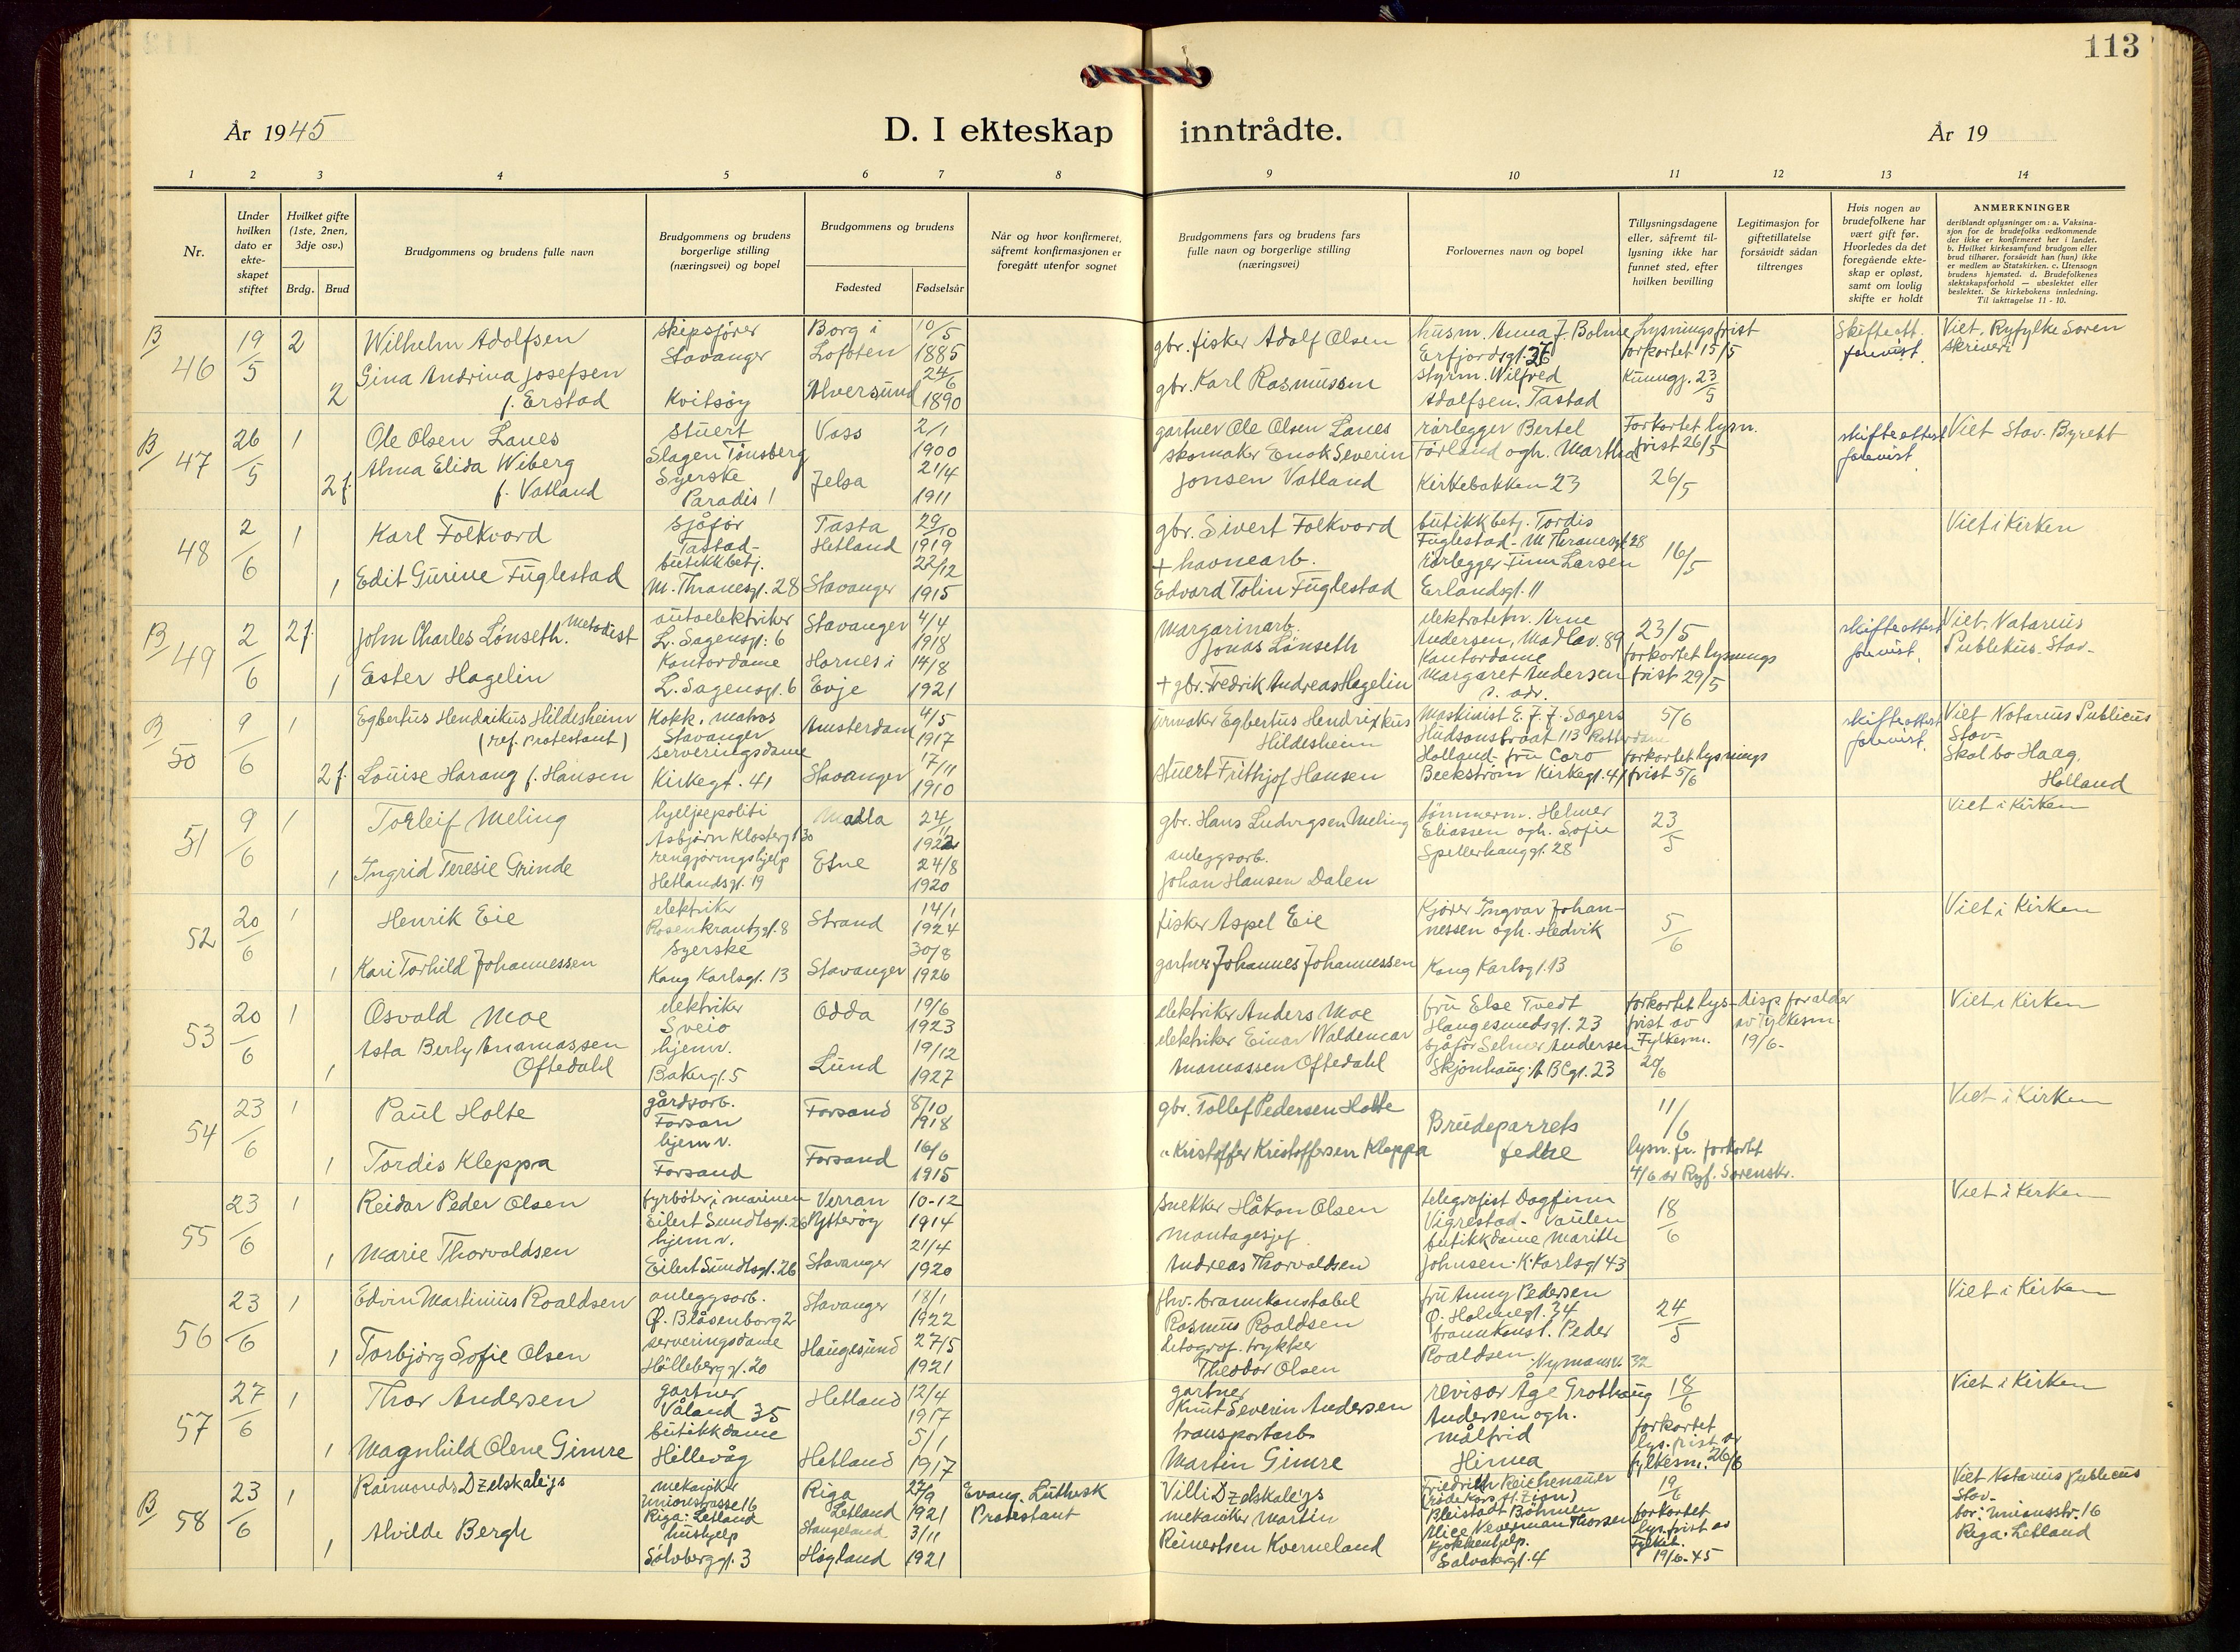 113
År 1945
D. I ekteskap inntrådte.
År 19
1 2 3 4 5 6 7 8 9 10 11 12 13 14
Nr.
Under hvilken dato er ekteskapet stiftet
Hvilket gifte (1ste, 2nen, 3dje osv.)
Brdg. Brud
Brudgommens og brudens fulle navn
Brudgommens og brudens borgerlige stilling (næringsvei) og bopel
Brudgommens og brudens
Fødested Fødselsår
Når og hvor konfirmeret, såfremt konfirmasjonen er foregått utenfor sognet
Brudgommens fars og brudens fars fulle navn og borgerlige stilling (næringsvei)
Forlovernes navn og bopel
Tillysningsdagene eller, såfremt tillysning ikke har funnet sted, efter hvilken bevilling
Legitimasjon for giftetillatelse forsåvidt sådan tiltrenges
Hvis nogen av brudefolkene har vært gift før. Hvorledes da det foregående ekteskap er opløst, samt om lovlig skifte er holdt
ANMERKNINGER
deriblandt oplysninger om: a. Vaksinasjon for de brudefolks vedkommende der ikke er konfirmeret her i landet. b. Hvilket kirkesamfund brudgom eller brud tilhører, forsåvidt han (hun) ikke er medlem av Statskirken. c. Utensogn brudens hjemsted. d. Brudefolkenes slektskapsforhold — ubeslektet eller beslektet. Se kirkebokens innledning. Til iakttagelse 11 - 10.
B/ 46 19/5 2 Wilhelm Adolfsen skipsfører Stavanger Borg i Lofoten 10/5 1885 gbr. fisker Adolf Olsen husm. Anna J. Bolme Erfjordsgt. 36 Lysningsfrist forkortet 15/5 Skifteatt. forevist. Viet. Ryfylke Soren skriveri
2 Gina Andrina Josefsen f. Erstad Kvitsøy Alversund 24/6 1890 gbr. Karl Rasmussen styrm. Wilfred Adolfsen. Tastad Kunngj. 23/5
B/ 47 26/5 1 Ole Olsen Lanes stuert Slagen Tønsberg Voss 2/1 1900 gartner Ole Olsen Lanes rørlegger Bertel Forkortet lysn. frist 26/5 skifteattest forevist. Viet Stav. Byrett
2 f. Alma Elida Wiberg f. Vatland Syerske Paradis 1 Jelsa 21/4 1911 skomaker Enok Severin Jonsen Vatland Førland og h. Martha Kirkebakken 23 26/5
48 2/6 1 Karl Folkvord sjåfør Tastad Tasta Hetland 29/10 1919 gbr. Sivert Folkvord butikkbetj. Tordis Fuglestad - M Thranesgt 28 16/5 Viet i Kirken
1 Edit Gurine Fuglestad butikkbetj. M. Thranesgt. 28 Stavanger 22/12 1915 + havnearb. Edvard Tolin Fuglestad rørlegger Finn Larsen Erlandsgt. 11
B/ 49 2/6 2 f. John Charles Lønseth. Metodist autoelektriker L. Sagensgt. 6 Stavanger 4/4 1918 Margarinarb. Jonas Lønseth elektrotekn. Arne Andersen, Madlav. 89 23/5 skifteattest forevist. Viet. Notarius Publikus. Stav.
1 Ester Hagelin Kontordame L. Sagensgt. 6 Hornes i Evje 14/8 1921 + gbr. Fredrik Andreas Hagelin Kontordame Margaret Andersen s. adr. forkortet lysnings frist 29/5
B/ 50 9/6 1 Egbertus Hendrikus Hildesheim (ref. protestant) Kokk. matros Stavanger Amsterdam 4/5 1917 urmaker Egbertus Hendrikus Hildesheim Maskinist E. J. J. Sagers Hudsonstraat 113 Rotterdam Holland 5/6 skifteattest forevist. Viet Notarius Publicus Stav- Skal bo Haag. Holland
2 f. Louise Harang f. Hansen serveringsdame Kirkegt. 41 Stavanger 17/11 1910 stuert Frithjof Hansen fru Caro Beckstrøm Kirkegt. 41 forkortet lysnings frist 5/6
51 9/6 1 Torleif Meling hjelpepoliti Asbjørn Klosterg 130 Madla 24/11 1922 gbr. Hans Ludvigsen Meling tømmerm. Helmer Eliassen og h. Sofie Spellerhauggt. 28 23/5 Viet i Kirken
1 Ingrid Teresie Grinde rengjøringshjelp Hetlandsgt. 19 Etne 24/8 1920 anleggsarb. Johan Hansen Dalen
52 20/6 1 Henrik Eie elektriker Rosenkrantzgt. 8 Strand 14/1 1924 fisker Aspel Eie Kjører Ingvar Johannessen og h. Hedvik 5/6 Viet i Kirken
1 Kari Torhild Johannessen Syerske Kong Karlsgt. 13 Stavanger 30/8 1926 gartner Johannes Johannessen Kong Karlsgt. 13
53 20/6 1 Osvald Moe elektriker Sveio Odda 19/6 1923 elektriker Anders Moe fru Else Tvedt Haugesundsgt. 23 forkortet lys- frist av Fylkesm. 20/6 disp for alder av Fylkesm. 19/6- Viet i Kirken
1 Asta Berly Anamassen Oftedahl hjemv. Bakergt. 5 Lund 19/12 1927 elektriker Einar Waldemar Anamassen Oftedahl sjåfør Selmer Andersen Skjønhaug: A B C gt. 23
54 23/6 1 Paul Holte gårdsarb. Forsan Forsand 8/10 1918 gbr. Tollef Pedersen Holte Brudeparrets fedre 11/6 Viet i Kirken
1 Tordis Kleppa hjemv. Forsand Forsand 16/6 1915 " Kristoffer Kristoffersen Kleppa lysn. fr. forkortet 4/6 av Ryf. Sorenskr.
55 23/6 1 Reidar Peder Olsen fyrbøter i marinen Eilert Sundtsgt. 26 Verran Ytterøy 10-12 1914 snekker Håkon Olsen telegrafist Dagfinn Vigrestad - Vaulen 18/6 Viet i Kirken
1 Marie Thorvaldsen hjemv. Eilert Sundtsgt. 26 Stavanger 21/4 1920 montagesjef Andreas Thorvaldsen butikkdame Marith Johnsen. K. Karlsgt 43
56 23/6 1 Edvin Martinius Roaldsen anleggsarb. Ø. Blåsenborg 2 Stavanger 18/1 1922 fhv. brannkonstabel Rasmus Roaldsen fru Anny Pedersen Ø. Holmegt. 34 24/5 Viet i Kirken
1 Torbjørg Sofie Olsen serveringsdame Hølleberggt. 20 Haugesund 27/5 1921 Litograf. trykker Theodor Olsen brannkonst. Peder Roaldsen Nymansv. 32
57 27/6 1 Thor Andersen gartner Våland 35 Hetland 12/4 1917 gartner Knut Severin Andersen revisor Åge Grothaug Andersen og h. 18/6 Viet i Kirken
1 Magnhild Olene Gimre butikkdame Hillevåg Hetland 5/1 1917 transportarb. Martin Gimre målfrid Hinna forkortet lys. frist av fylkesm. 26/6
B/ 58 23/6 1 Raimonds Dzelskalejs mekaniker Unionstrasse 16 Riga: Letland Riga Letland 27/9 1921 Evang. Luthersk Protestant Villi Dzelskalejs mekaniker Friedrich Reichenauer Bleistadt Böhmen 19/6 Viet Notarius Publicus Stav- bor: Unionsstr. 16 Riga. Letland
1 Alvilde Bergh hushjelp Sølvberggt. 3 Stangeland Høgland 3/11 1921 Martin Reinertsen Kverneland Alice Neverman Thorsen kjøkkenhjelp. Salvakergt. 4 forkortet lys. frist av Fylket. 19/6-45